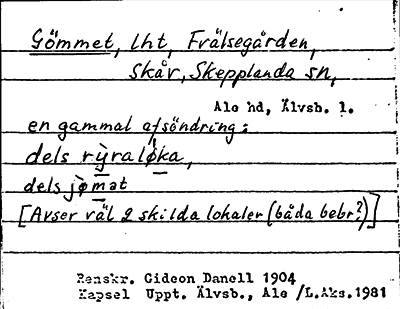 Gömmet, lht, Frälsegården,
Skår, Skepplanda sn,
Ale hd, Älvsb. l.
en gammal afsöndring:
dels rỳralø̀ka,
dels jø̀mət
[Avser väl 2 skilda lokaler (båda bebr.?)]
Renskr. Gideon Danell 1904
Kapsel Uppt. Älvsb., Ale /L.Aks.1981